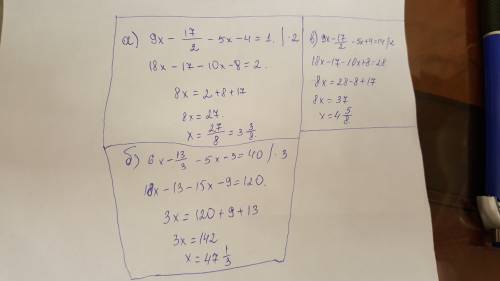 а) 9x - 17/2 - 5x - 4 = 1. | · 2
18x - 17 - 10x - 8 = 2.
8x = 2 + 8 + 17
8x = 27.
x = 27/8 = 3 3/8
б) 6x - 13/3 - 5x - 3 = 40 / · 3
18x - 13 - 15x - 9 = 120.
3x = 120 + 9 + 13
3x = 142
x = 47 1/3
в) 9x - 17/2 - 5x + 4 = 14 | · 2
18x - 17 - 10x + 8 = 28
8x = 28 - 8 + 17
8x = 37
x = 4 5/8